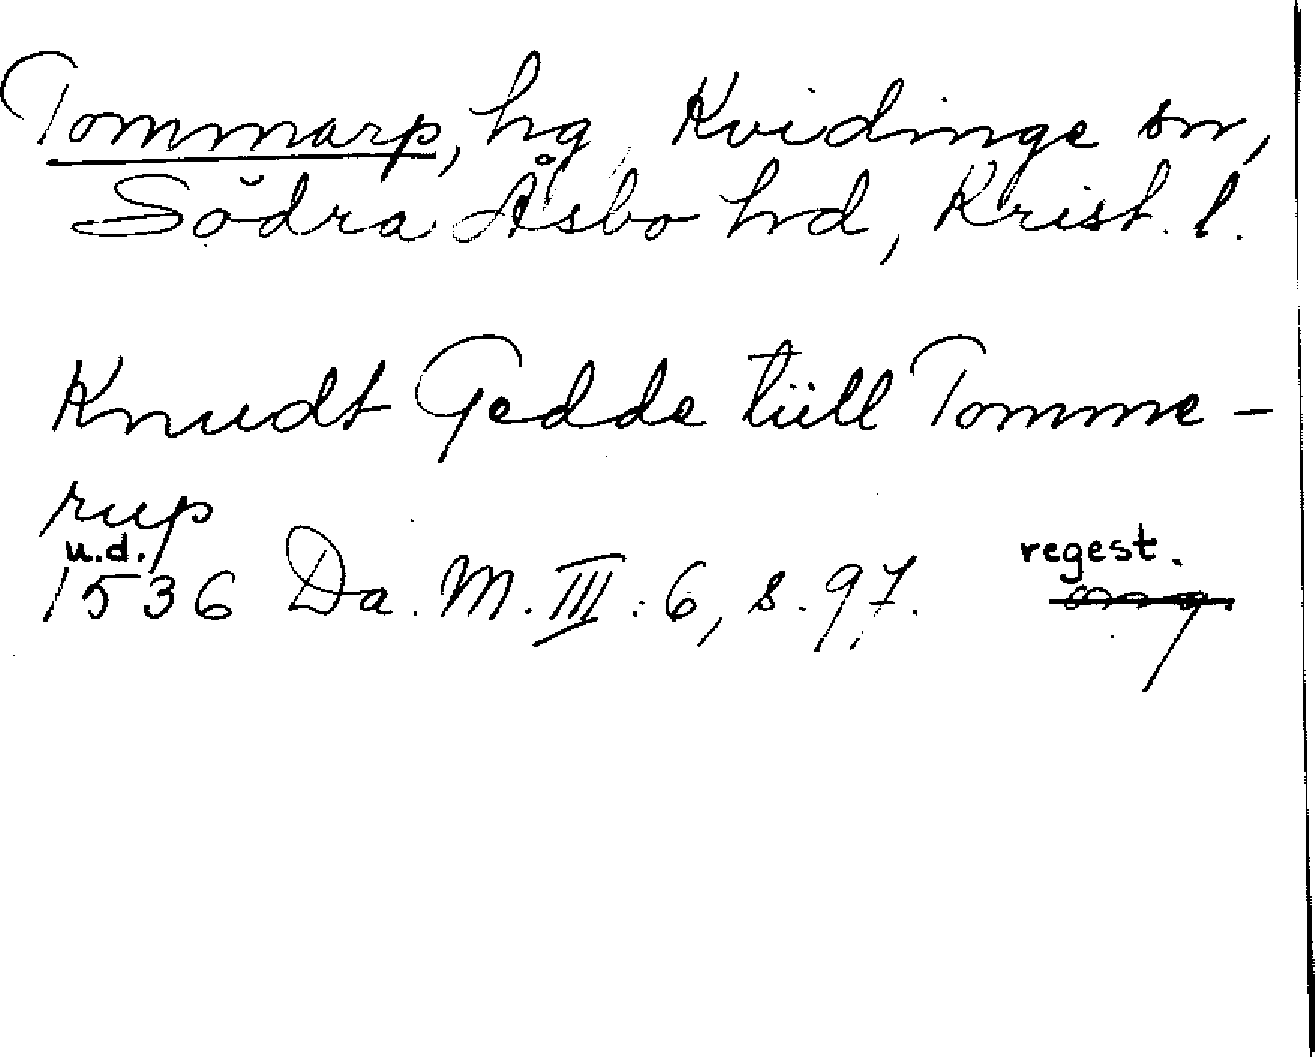 Tommarp, hg, Kvidinge sn,
Södra Åsbo hd, Krist. l.
Knudt Gedde tüll Tomme-
rup
u.d.
1536 Da. M. III: 6, s. 97.
regest.